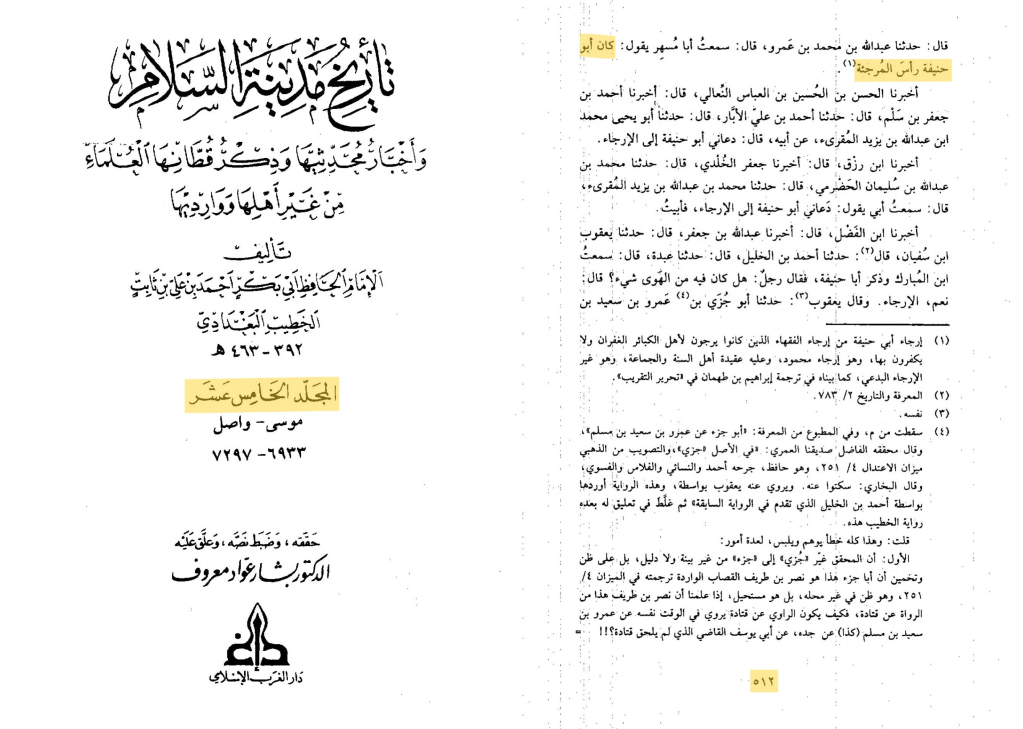 تاريخ مدينة السلام
وأخبار محدثيها وذكر قطانها العلماء
من غير أهلها ووارديها
تأليف
الإمام الحافظ أبي بكر أحمد بن علي بن ثابت
الخطيب البغدادي
٣٩٢ - ٤٦٣ هـ
المجلد الخامس عشر
موسى - واصل
٦٩٣٣ - ٧٢٩٧
حققه، وضبط نصه، وعلق عليه
الدكتور بشار عواد معروف
دار الغرب الإسلامي
قال: حدثنا عبدالله بن محمد بن عَمرو، قال: سمعتُ أبا مُسهِر يقول: كان أبو
حنيفة رأسَ المُرجئة(١).
أخبرنا الحسن بن الحُسين بن العباس النِّعالي، قال: أخبرنا أحمد بن
جعفر بن سَلْم، قال: حدثنا أحمد بن عليّ الأبَّار، قال: حدثنا أبو يحيى محمد
ابن عبدالله بن يزيد المُقرىء، عن أبيه، قال: دعاني أبو حنيفة إلى الإرجاء.
أخبرنا ابن رزق، قال: أخبرنا جعفر الخُلْدي، قال: حدثنا محمد بن
عبدالله بن سُليمان الحَضْرمي، قال: حدثنا محمد بن عبدالله بن يزيد المُقرىء،
قال: سمعتُ أبي يقول: دَعاني أبو حنيفة إلى الإرجاء، فأبيتُ.
أخبرنا ابن الفَضْل، قال: أخبرنا عبدالله بن جعفر، قال: حدثنا يعقوب
ابن سُفيان، قال(٢): حدثنا أحمد بن الخليل، قال: حدثنا عبدة، قال: سمعتُ
ابن المُبارك وذكر أبا حنيفة، فقال رجلٌ: هل كان فيه من الهَوى شيء؟ قال:
نعم، الإرجاء. وقال يعقوب(٣): حدثنا أبو جُزَي بن(٤) عَمرو بن سعيد بن
(١) إرجاء أبي حنيفة من إرجاء الفقهاء الذين كانوا يرجون لأهل الكبائر الغفران ولا
يكفرون بها، وهو إرجاء محمود، وعليه عقيدة أهل السنة والجماعة، وهو غير
الإرجاء البدعي، كما بيناه في ترجمة إبراهيم بن طهمان في «تحرير التقريب».
(٢) المعرفة والتاريخ ٢/ ٧٨٣.
(٣) نفسه.
(٤) سقطت من م، وفي المطبوع من المعرفة: «أبو جزء عن عمرو بن سعيد بن مسلم»،
وقال محققه الفاضل صديقنا العمري: «في الأصل «جزي»، والتصويب من الذهبي
ميزان الاعتدال ٤/ ٢٥١، وهو حافظ، جرحه أحمد والنسائي والفلاس والفسوي،
وقال البخاري: سكتوا عنه. ويروي عنه يعقوب بواسطة، وهذه الرواية أوردها
بواسطة أحمد بن الخليل الذي تقدم في الرواية السابقة» ثم غلَّط في تعليق له بعده
رواية الخطيب هذه.
قلت: وهذا كله خطأ يوهم ويلبس، لعدة أمور:
الأول: أن المحقق غيّر «جُزي» إلى «جزء» من غير بينة ولا دليل، بل على ظن
وتخمين أن أبا جزء هذا هو نصر بن طريف القصاب الواردة ترجمته في الميزان ٤/
٢٥١، وهو ظن في غير محله، بل هو مستحيل، إذا علمنا أن نصر بن طريف هذا من
الرواة عن قتادة، فكيف يكون الراوي عن قتادة يروي في الوقت نفسه عن عمرو بن
سعيد بن مسلم (كذا) عن جده، عن أبي يوسف القاضي الذي لم يلحق قتادة؟!! =
٥١٢